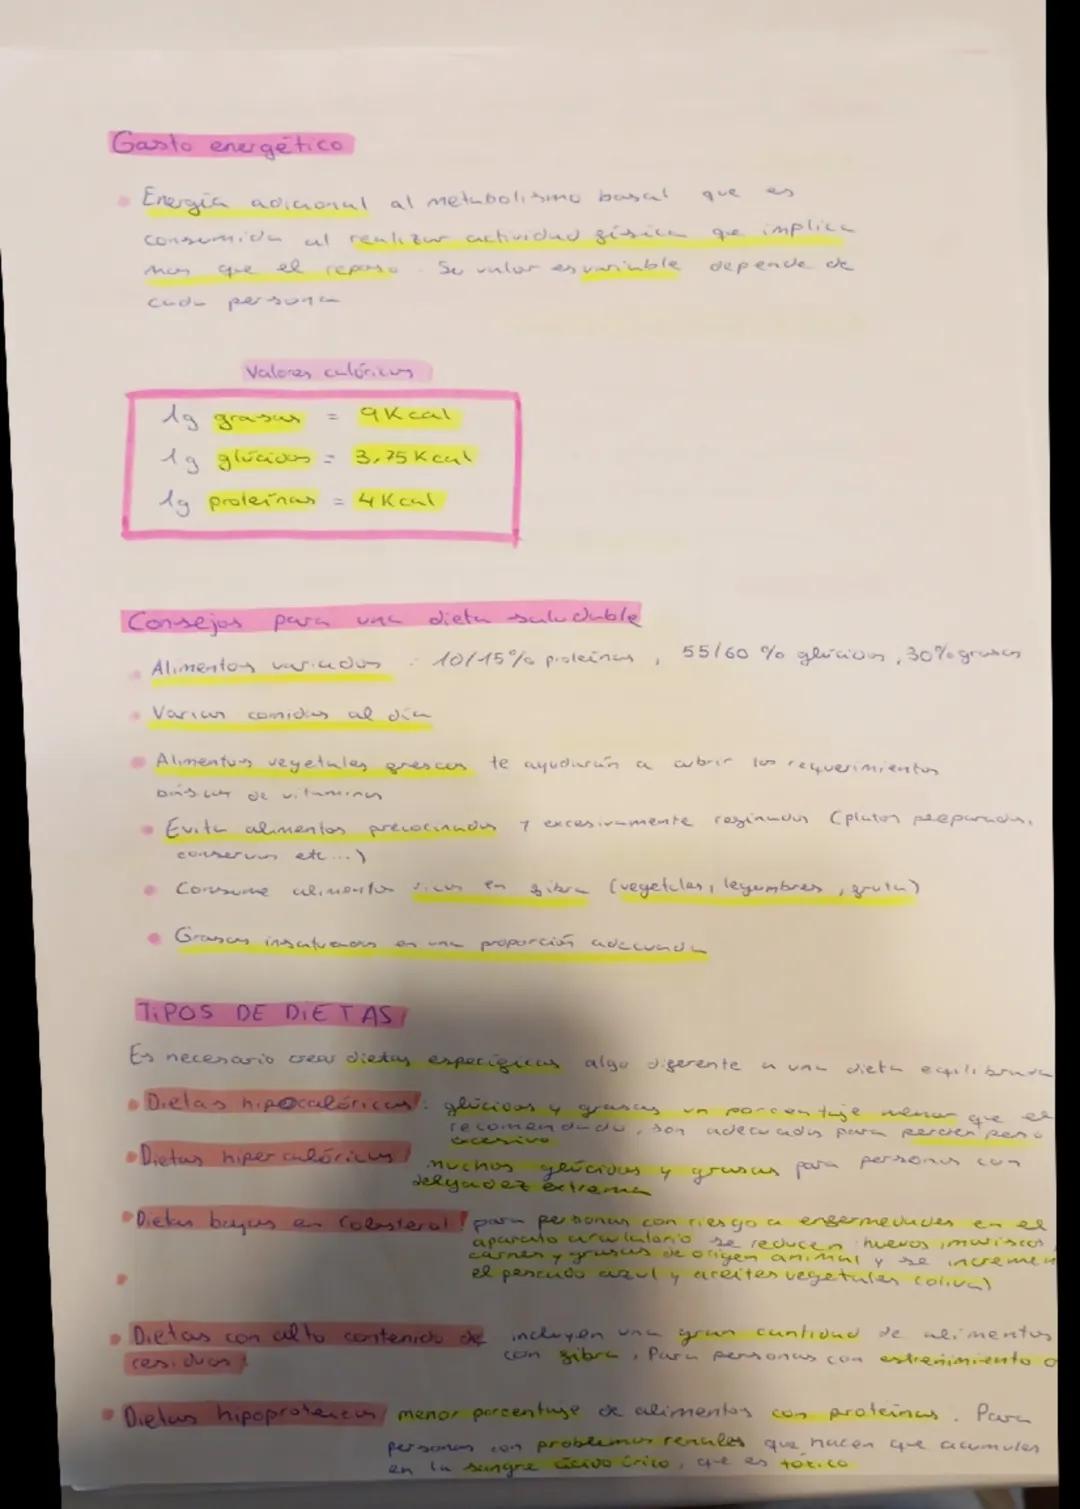 Gasto energético
Energía adicional al metabolismo basal que es
consumida al realizar actividad física que implica
mas que el reposo. Su valor es variable depende de
cada persona
Valores calóricos
1g grasas = 9Kcal
1g glúcidos = 3,75 Kcal
1g proteínas = 4Kcal
Consejos para una dieta saludable
Alimentos variados : 10/15% proteínas, 55/60 % glúcidos, 30% grasas
Varias comidas al día
Alimentos vegetales frescos te ayudarán a cubrir los requerimientos
básicos de vitaminas
Evita alimentos precocinados y excesivamente refinados (platos preparados,
conservas etc...)
Consume alimentos ricos en fibra (vegetales, legumbres, fruta)
Grasas insaturadas en una proporción adecuada
TIPOS DE DIETAS
Es necesario crear dietas específicas algo diferente a una dieta equilibrada
Dietas hipocalóricas: glúcidos y grasas un porcentaje menor que el
recomendado, son adecuados para perder peso
excesivo
Dietas hipercalóricas muchos glúcidos y grasas para personas con
delgadez extrema
Dietas bajas en colesterol: para personas con riesgo a enfermedades en el
aparato circulatorio se reducen huevos, mariscos,
carnes y grasas de origen animal y se incremen
el pescado azul y aceites vegetales (oliva)
Dietas con alto contenido de incluyen una gran cantidad de alimentos
residuos: con fibra, Para personas con estreñimiento o
Dietas hipoproteicas menor porcentaje de alimentos con proteínas. Para
personas con problemas renales que hacen que acumules
en la sangre ácido úrico, que es tóxico